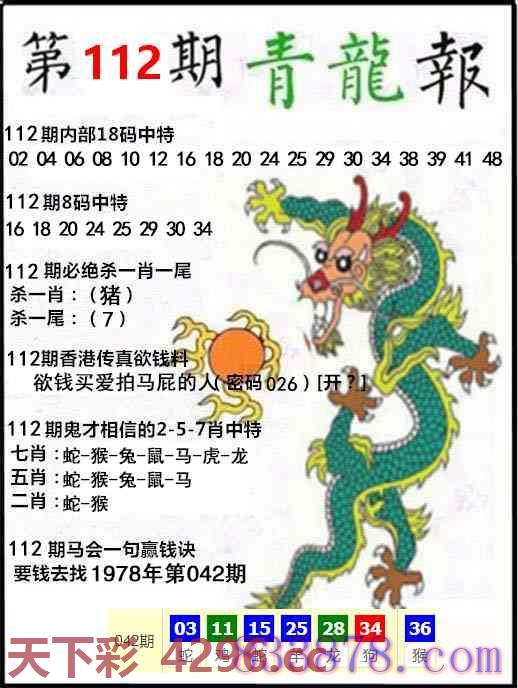 第112期青龍報
112期内部18码中特
02 04 06 08 10 12 16 18 20 24 25 29 30 34 38 39 41 48
112期8码中特
16 18 20 24 25 29 30 34
112期必绝杀一肖一尾
杀一肖：（猪）
杀一尾：（7）
112期香港传真欲钱料
欲钱买爱拍马屁的人（密码026）[开？]
112期鬼才相信的2-5-7肖中特
七肖：蛇-猴-兔-鼠-马-虎-龙
五肖：蛇-猴-兔-鼠-马
二肖：蛇-猴
112期马会一句赢钱诀
要钱去找1978年第042期
042期 03 11 15 25 28 34 36
蛇 鸡 蛇 羊 龙 狗 猴
天下彩 4296.cc